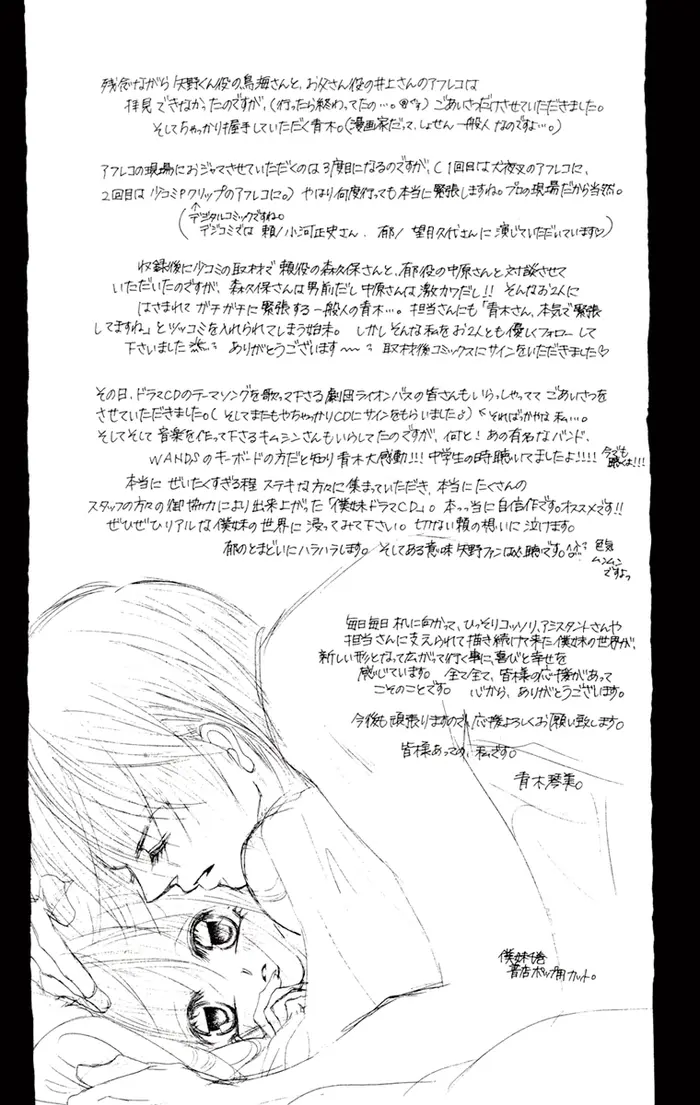 残念ながら矢野くん役の鳥海さんと、お父さん役の井上さんのアフレコは
拝見できなかったのですが、(行ったら終わってたの…。) ごあいさつだけさせていただきました。
そしてちゃっかり握手していただく青木。(漫画家だって、しょせん一般人なのですよ…。)
アフレコの現場におジャマさせていただくのは3度目になるのですが、(1回目は犬夜叉のアフレコに、
2回目は少コミPクリップのアフレコに。) やはり何度行っても本当に緊張しますね。プロの現場だから当然。
(↑デジタルコミックですね。
デジコミでは 頼/小河正史さん、郁/望月久代さんに演じていただいています♡)
収録後に少コミの取材で 頼役の森久保さんと、郁役の中原さんと対談させて
いただいたのですが、森久保さんは男前だし中原さんは激カワだし!! そんなお2人に
はさまれてガチガチに緊張する一般人の青木…。担当さんにも「青木さん、本気で緊張
してますね」とツッコミを入れられてしまう始末。しかしそんな私をお2人とも優しくフォローして
下さいました ありがとうございます〜〜 取材後コミックスにサインをいただきました♡
その日、ドラマCDのテーマソングを歌って下さる劇団ライオンパスの皆さんもいらっしゃってて ごあいさつを
させていただきました。(そしてまたもやちゃっかりCDにサインをもらいました♪) そればっかかよ 私…。
そしてそして 音楽を作って下さるキムシンさんもいらしてたのですが、何と!あの有名なバンド、
WANDSのキーボードの方だと知り 青木大感動!!! 中学生の時聴いてましたよ!!!! 今でも
聴くよ!!!
本当に ぜいたくすぎる程 ステキな方々に集まっていただき、本当にたくさんの
スタッフの方々の御協力により出来上がった「僕妹ドラマCD」。本っ当に自信作です。オススメです!!
ぜひぜひリアルな僕妹の世界に浸ってみて下さい。切ない頼の想いに泣けます。
郁のとまどいにハラハラします。そしてある意味 矢野ファンは必聴です。 色気
ムンムン
ですよっ
毎日毎日 机に向かって、ひっそりコッソリ、アシスタントさんや
担当さんに支えられて描き続けて来た僕妹の世界が、
新しい形となって広がって行く事に喜びと幸せを
感じています。全て全て、皆様の応援があって
こそのことです。心から、ありがとうございます。
今後も頑張りますので応援よろしくお願い致します。
皆様あっての、私です。
青木琴美。
僕妹1巻
書店ポップ用カット。